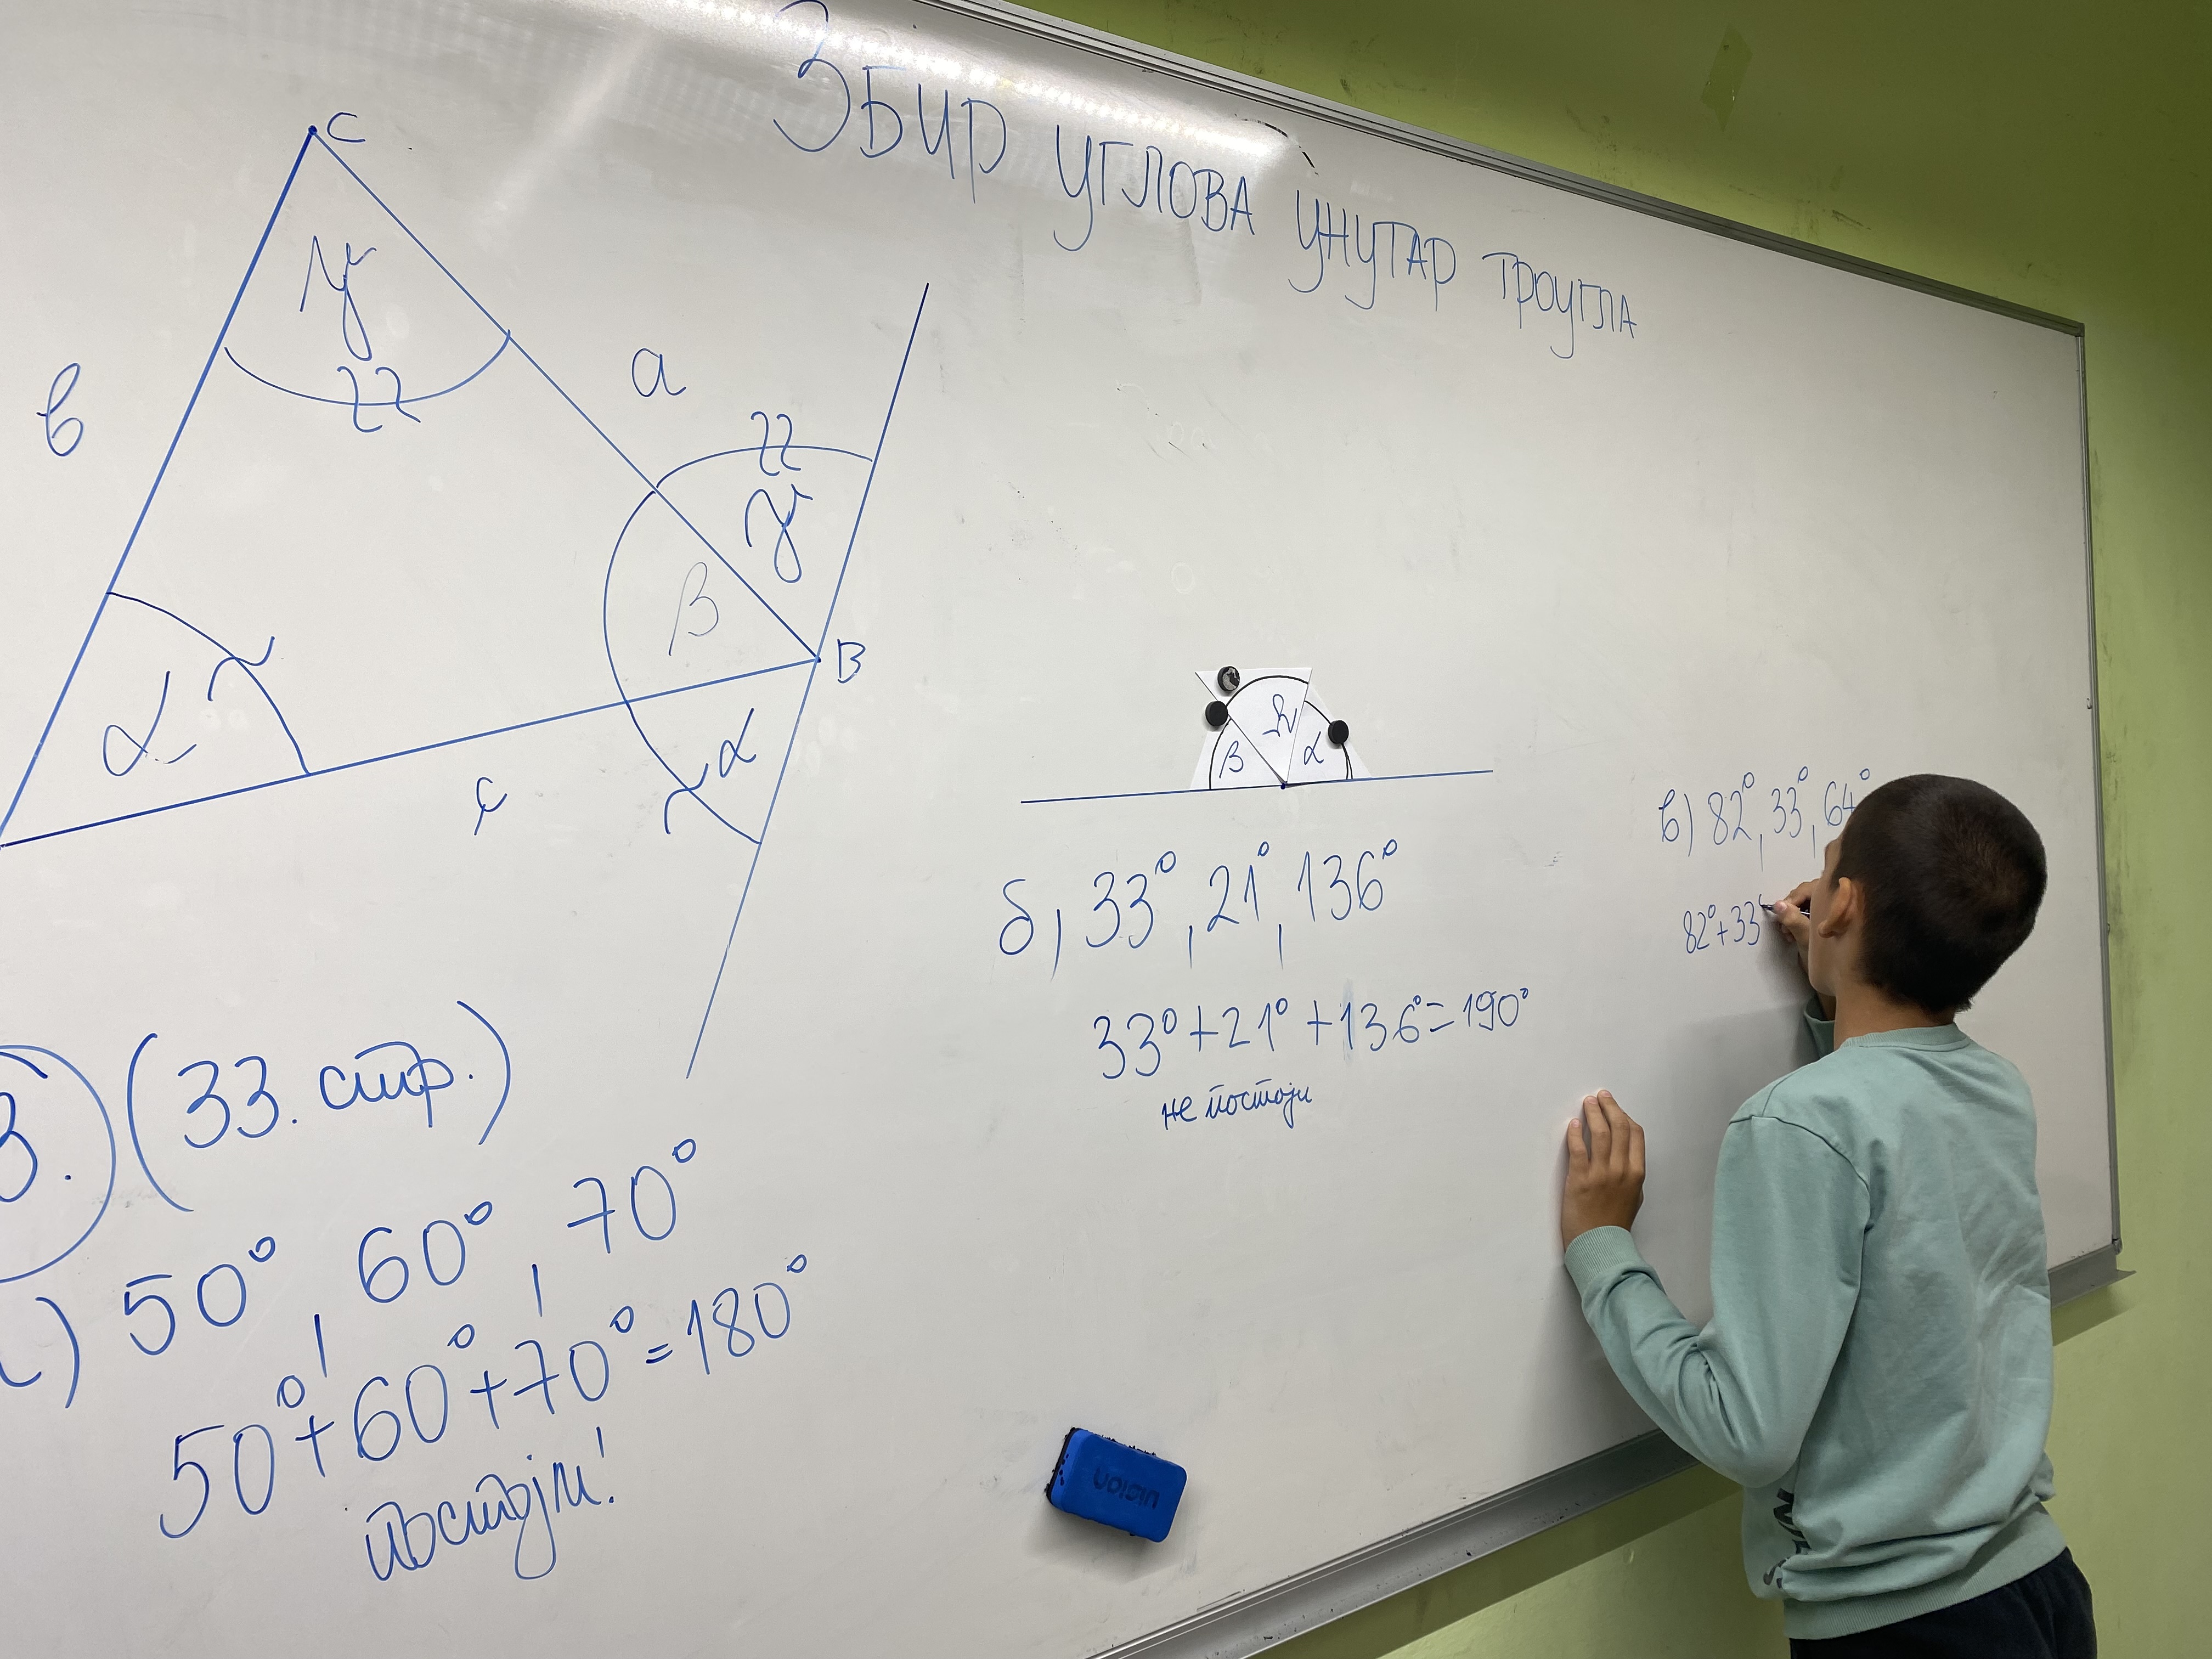 Збир углова унутар троугла
C
γ
в
a
γ
β
B
α
α
c
β γ α
3. (33. стр.)
50°, 60°, 70°
50°+60°+70°=180°
постоји!
б) 33°, 21°, 136°
33°+21°+136°=190°
не постоји
в) 82°, 33°, 64°
82°+33°
vision